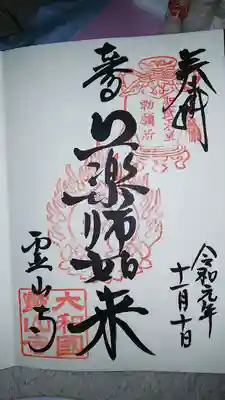 奉拝
令和元年
十一月十日
勅願所
薬師如来
霊山寺
大和國
霊山寺